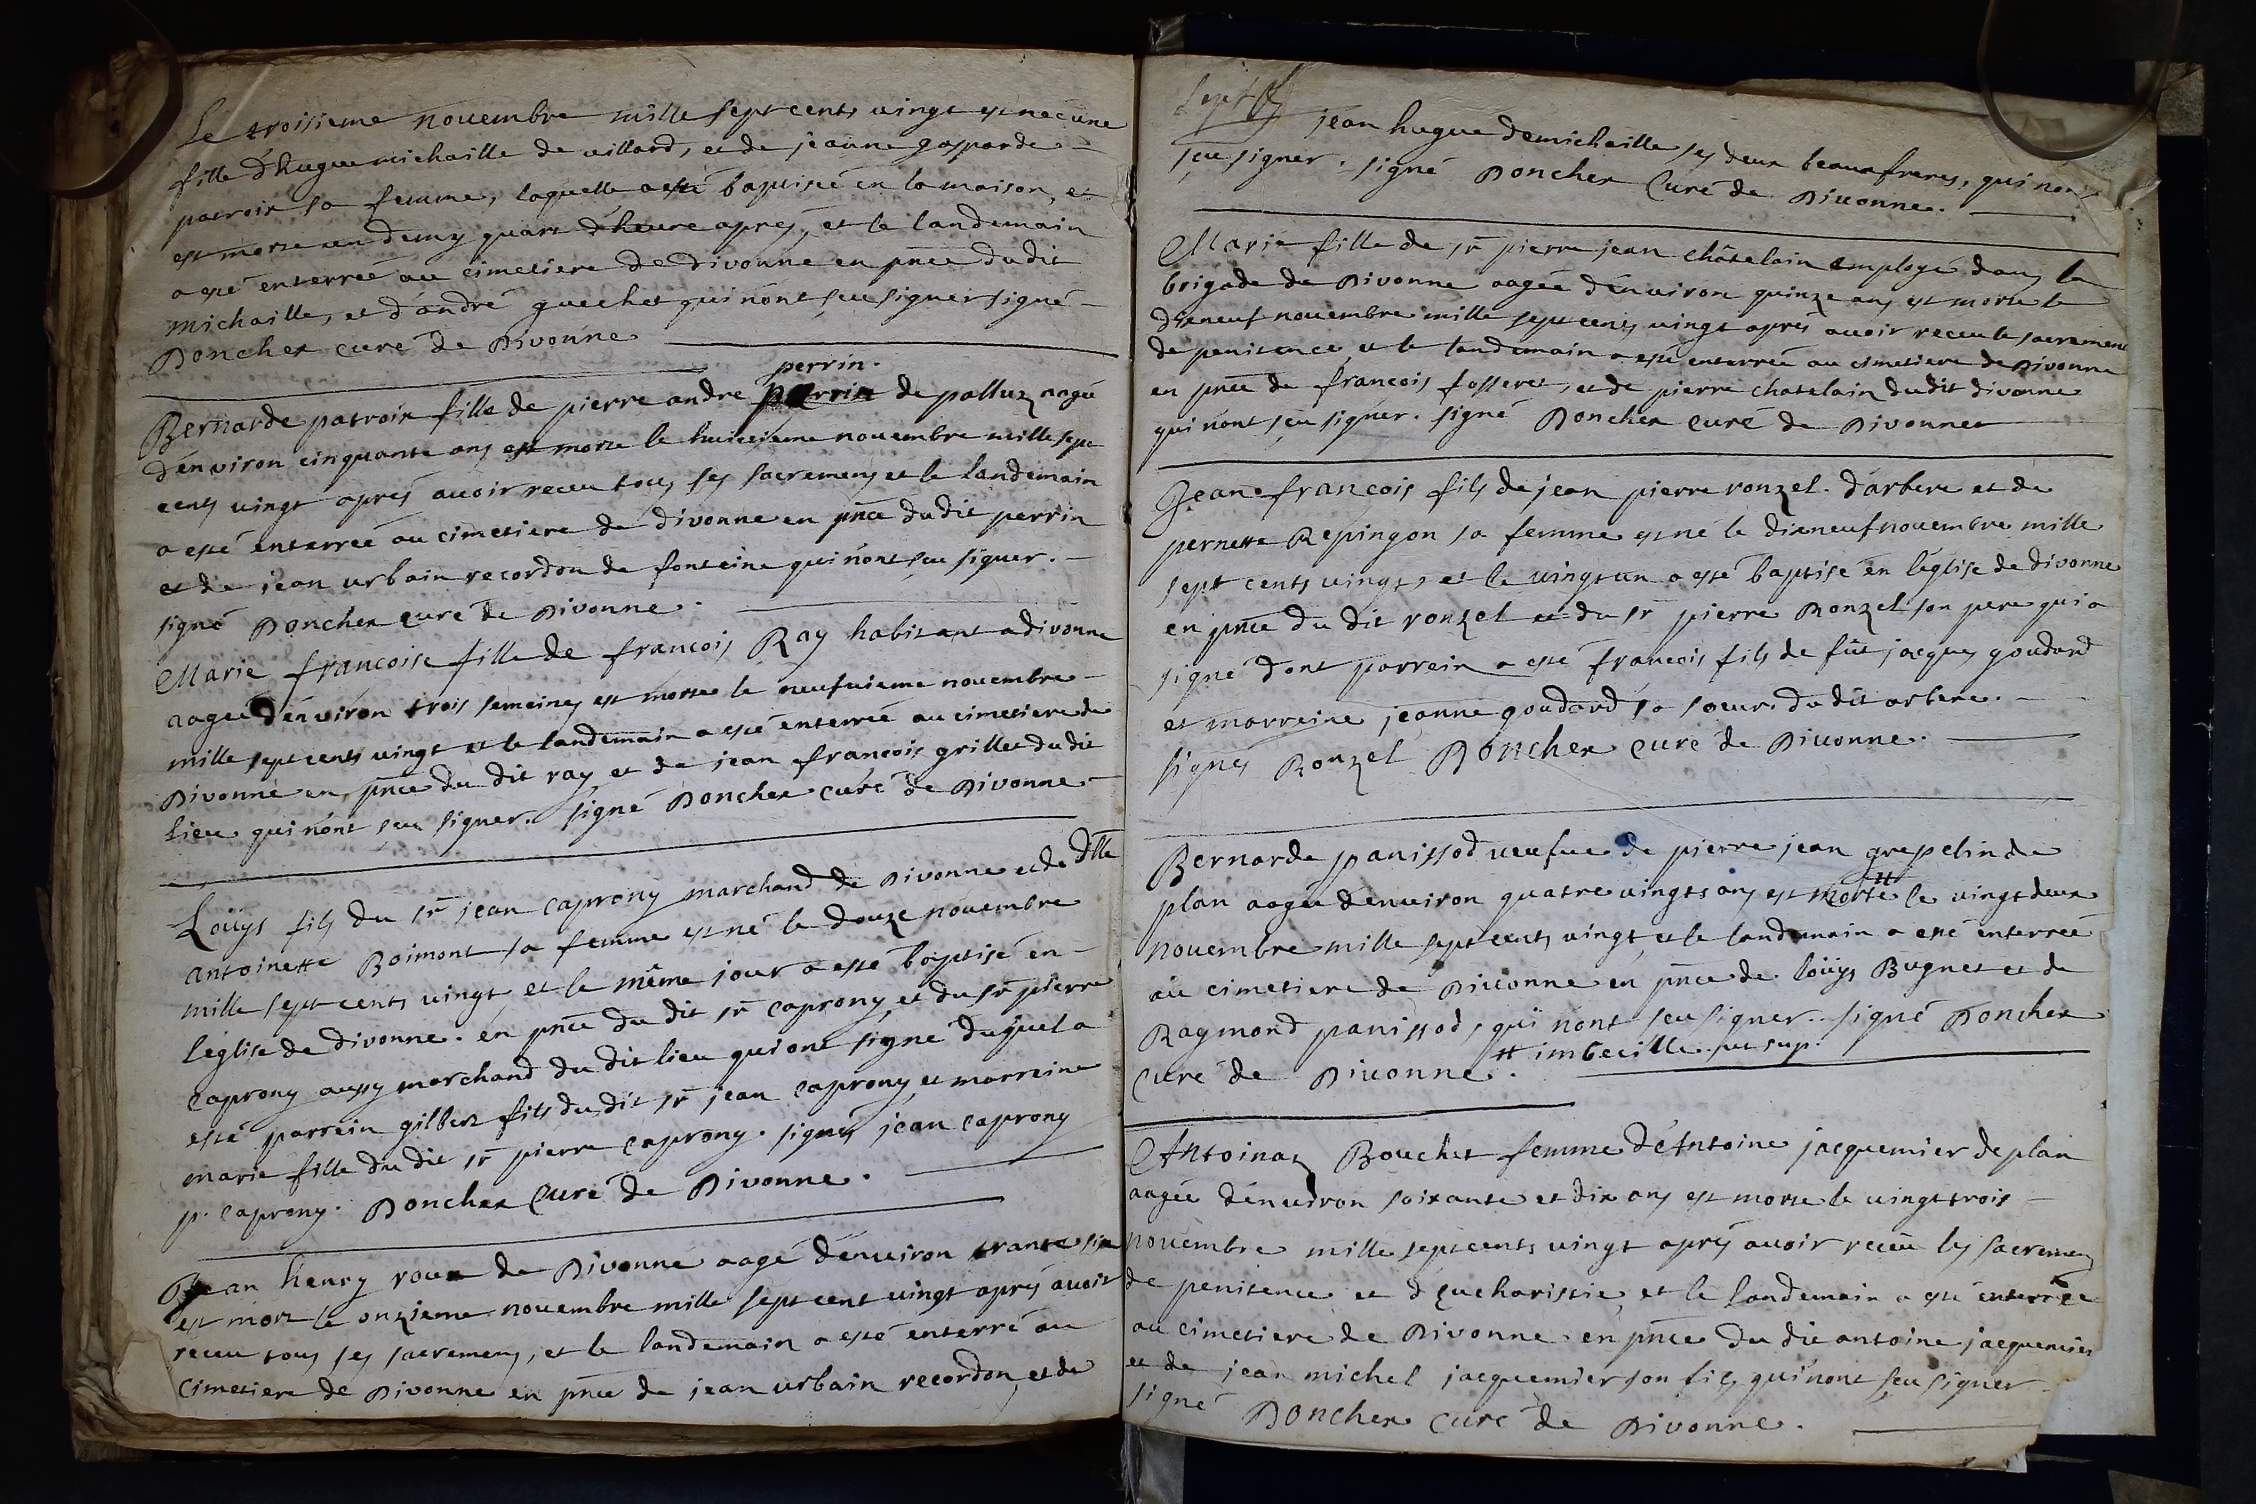 Le troisieme novembre mille sept cents vingt est neé une
fille d'hugue michaille de villard, et de jeanne gasparde
patroix sa femme, laquelle a esté baptiseé en la maison, et
est morte un demy quart d'heure aprés, et le landemain
a esté enterreé au cimetiere de Divonne en pñce dudit
michaille, et d'andré guechet qui n'ont sçu signer signé
Poncher curé de Divonne
perrin.
Bernarde patroix fille de pierre andre perrin de palluz aageé
d'environ cinquante ans est morte le huictieme novembre mille sept
cents vingt aprés avoir receu tous ses sacremens et le landemain
a esté enterreé au cimetiere de divonne en pñce du dit perrin
et de jean urbain recordon de fonteine qui n'ont sçu signer.
signé Poncher curé de Divonne.
Marie francoise fille de francois Ray habitant a divonne
aageé d'environ trois semeines est morte le neufvieme novembre
mille sept cents vingt et le landemain a esté enterreé au cimetiere de
Divonne en pñce du dit ray, et de jean francois grillet du dit
lieu qui n'ont sçu signer. signé Poncher curé de Divonne
Loüys fils du sr jean caprony marchand de Divonne et de Dlle
antoinette Boimont sa femme est né le douze novembre
mille sept cents vingt et le même jour a esté baptisé en
l'église de divonne. en pñce du dit sr caprony, et du sr pierre
caprony aussy marchand du dit lieu qui ont signé duquel a
esté parrein gilbert fils du dit sr jean caprony, et marreine
marie fille du dit sr pierre caprony. signés jean caprony
p. caprony. Poncher Curé de Divonne.
Jean henry roux de Divonne aagé d'environ trante six
est mort le onzieme novembre mille sept cent vingt aprés avoir
receu tous ses sacremens, et le landemain a esté enterré au
cimetiere de Divonne en pñce de jean urbain recordon, et de
jean hugue demichaille ses deux beaux freres, qui n'ont
sçu signer. signé Poncher Curé de Divonne.
Marie fille de sr pierre jean châtelain employé dans la
brigade de Divonne aageé d'environ quinze ans est morte le
dixneuf novembre mille sept cents vingt aprés avoir receu le sacrement
de penitence et le landemain a esté enterreé au cimetiere de Divonne
en pñce de francois fosseret, et de pierre chatelain dudit divonne
qui n'ont sçu signer. signé Poncher curé de Divonne
Jean francois fils de jean pierre ronzel d'arbere et de
pernette Repingon sa femme est né le dixneuf novembre mille
sept cents vingt, et le vingt un a esté baptisé en l'église de divonne
en pñce du dit ronzel et du sr pierre Ronzel son pere qui a
signé dont parrein a esté francois fils de fût jacques goudard
et marreine jeanne goudard sa soeur du dit arbere.
signés Ronzel Poncher curé de Divonne.
Bernarde panissod veufve de pierre jean grepelin de
plan aageé d'environ quatre vingts ans est morte # le vingt deux
novembre mille sept cents vingt, et le landemain a esté enterreé
au cimetiere de Divonne en pñce de loüys Bugnet et de
Raymond panissod, qui n'ont sçu signer. signé Poncher
curé de Divonne. # imbecille ut sup.
Antoinaz Bouchet femme d'Antoine jacquemier de plan
aageé d'environ soixante et dix ans est morte le vingt trois
novembre mille sept cents vingt aprés avoir receu les sacremens
de penitence et d'eucharistie, et le landemain a esté enterreé
au cimetiere de Divonne en pñce du dit antoine jacquemier
et de jean michel jacquemier son fils, qui n'ont sçu signer
signé Poncher curé de Divonne.